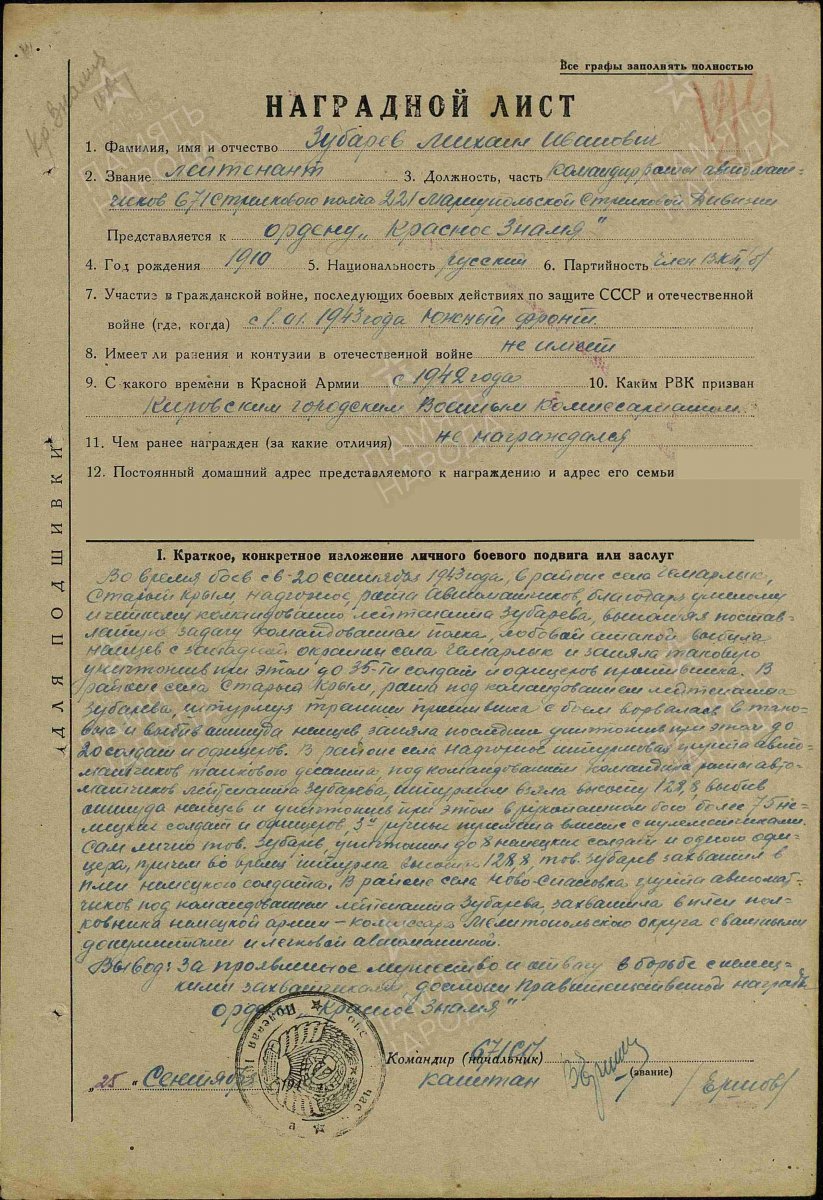 Кр Знамя
Все графы заполнять полностью
НАГРАДНОЙ ЛИСТ
1. Фамилия, имя и отчество Зубарев Михаил Иванович
2. Звание лейтенант 3. Должность, часть Командир роты автомат-
чиков 671 Стрелкового полка 221 Мариупольской Стрелковой Дивизии
Представляется к ордену „Красное Знамя"
4. Год рождения 1910 5. Национальность русский 6. Партийность член ВКП(б)
7. Участие в гражданской войне, последующих боевых действиях по защите СССР и отечественной
войне (где, когда) с 1.01.1943 года Южный фронт.
8. Имеет ли ранения и контузии в отечественной войне не имеет
9. С какого времени в Красной Армии с 1942 года 10. Каким РВК призван
Кировским городским Военным Комиссариатом
11. Чем ранее награжден (за какие отличия) не награждался
12. Постоянный домашний адрес представляемого к награждению и адрес его семьи
ДЛЯ ПОДШИВКИ
I. Краткое, конкретное изложение личного боевого подвига или заслуг
Во время боев с 8-20 сентября 1943 года, в районе села Чемарлык,
Старый Крым, Надточное, рота Автоматчиков, благодаря умелому
и четкому командованию лейтенанта Зубарева, выполняя постав-
ленную задачу командованием полка, лобовой атакой выбила
немцев с западной окраины села Чемарлик и заняла таковую
уничтожив при этом до 35-ти солдат и офицеров противника. В
районе села Старый Крым, рота под командованием лейтенанта
Зубарева, штурмуя траншеи противника с боем ворвалась в тако-
вые и выбив оттуда немцев, заняла последние уничтожив при этом до
20 солдат и офицеров. В районе села Надточное штурмовая группа авто-
матчиков танкового десанта, под командованием командира роты авто-
матчиков лейтенанта Зубарева, штурмом взяла высоту 128,8 выбив
оттуда немцев и уничтожив при этом в рукопашном бою более 75 не-
мецких солдат и офицеров, 3 ручных пулемета вместе с пулеметчиками.
Сам лично тов. Зубарев, уничтожил до 8 немецких солдат и одного офи-
цера, причем во время штурма высоты 128,8 тов. Зубарев захватил в
плен немецкого солдата. В районе села Ново-Спасовка группа автомат-
чиков под командованием лейтенанта Зубарева, захватила в плен пол-
ковника немецкой армии – комиссара Мелитопольского округа с важными
документами и легковой автомашиной.
Вывод: За проявленное мужество и отвагу в борьбе с немец-
кими захватчиками достоин Правительственной награды
орден „Красное Знамя"
Командир (начальник) 671 СП
„25" Сентября капитан (звание) /Ершов/
Полевая
час
ПАМЯТЬ НАРОДА